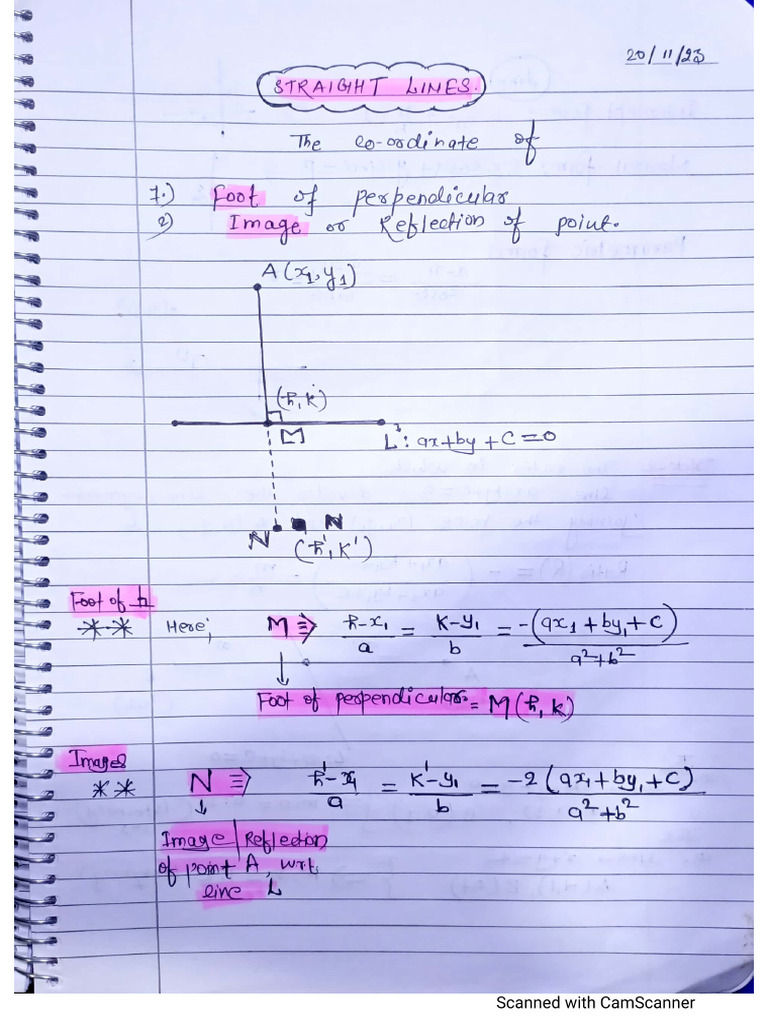 20/11/23
STRAIGHT LINES.
The co-ordinate of
1.) Foot of perpendicular
2) Image or Reflection of point.
A(x₁,y₁)
(h,k)
M
L: ax+by+C=0
N N
(h',k')
Foot of
** Here; M ⇒ h-x₁/a = k-y₁/b = -(ax₁+by₁+C)/a²+b²
Foot of perpendicular = M(h,k)
Image
** N ⇒ h'-x₁/a = k'-y₁/b = -2(ax₁+by₁+C)/a²+b²
Image/Reflection
of point A, wrt
line L
Scanned with CamScanner